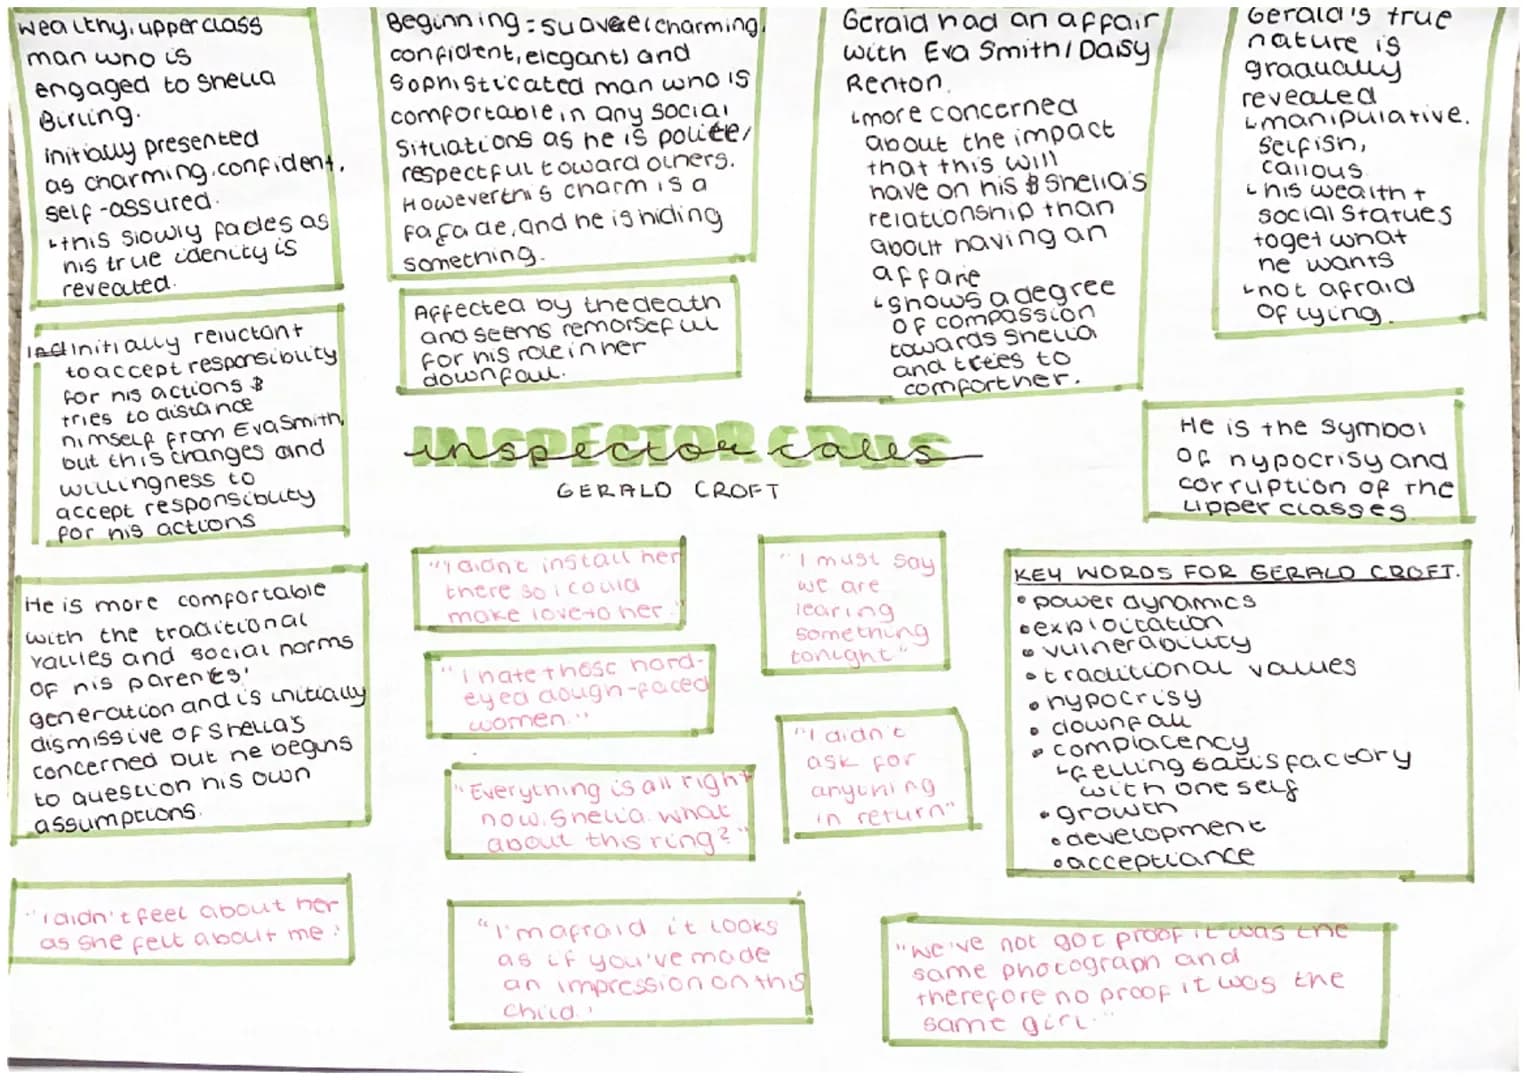 wealthy, upper class
man who is
engaged to Sheila
Birling.
initially presented
as charming, confident,
self-assured.
↳this slowly fades as
his true idenity is
revealed.
Beginning = suave (charming,
confident, elegant) and
sophisticated man who is
comfortable in any social
situations as he is polite/
respectful toward others.
However this charm is a
facade, and he is hiding
something.
Gerald had an affair
with Eva Smith/Daisy
Renton.
↳more concerned
about the impact
that this will
have on his & Sheila's
relationship than
about having an
affare
↳shows a degree
of compassion
towards Sheila
and trees to
comfort her.
Gerald's true
nature is
gradually
revealed
↳manipulative.
selfish,
callous.
↳his wealth +
social statues
to get what
he wants
↳not afraid
of lying.
Initially reluctant
to accept responsiblity
for his actions &
tries to distance
himself from Eva Smith,
but this changes and
willingness to
accept responsiblity
for his actions
Affected by the death
and seems remorseful
for his role in her
downfall.
INSPECTOR CALLS
inspector calls
GERALD CROFT
He is the symbol
of hypocrisy and
corruption of the
upper classes.
He is more comfortable
with the traditional
values and social norms
of his parents'
generation and is initially
dismissive of Sheila's
concerned but he begins
to question his own
assumptions.
"I didn't install her
there so i could
make love to her."
"I must say
we are
learing
something
tonight"
"I hate those hard-
eyed dough-faced
women."
"I didn't
ask for
anything
in return"
"Everything is all right
now. Sheila. what
about this ring?"
KEY WORDS FOR GERALD CROFT.
• power dynamics
• exploitation
• vulnerability
• traditional values
• hypocrisy
• downfall
• complacency
↳felling satisfactory
with one self
• growth
• development
• acceptiance
"I didn't feel about her
as she felt about me."
"I'm afraid it looks
as if you've made
an impression on this
child."
"We've not got proof it was the
same photograph and
therefore no proof it was the
same girl."